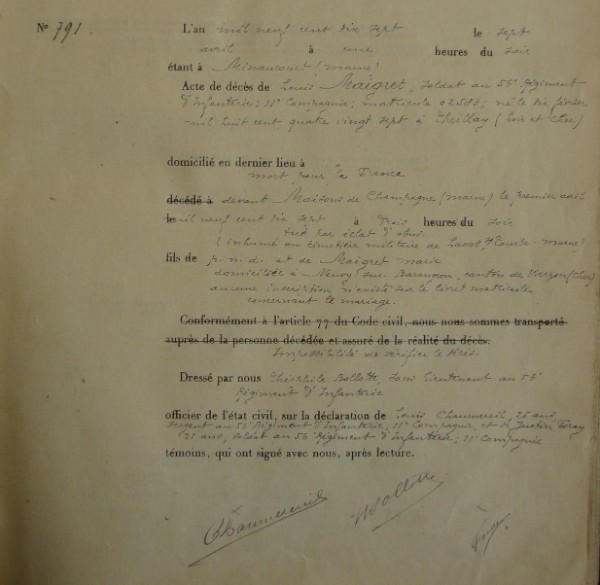 N° 791.
L'an mil neuf cent dix sept le sept
avril à une heures du soir
étant à Minaucourt (marne)
Acte de décès de Louis Maigret, soldat au 5 Régiment
d'Infanterie; 11e Compagnie; matricule né le février
mil huit cent quatre vingt sept à Theillay (Loir et Cher)
domicilié en dernier lieu à
mort pour la France
décédé à devant Maisons de Champagne (marne) le premier avril
le mil neuf cent dix sept à trois heures du soir
tué par éclat d'obus.
(inhumé au cimetière militaire de marne)
fils de p. n. d. et de Maigret marie
domiciliée à Neuvy sur Barangeon, canton de Vierzon (Cher)
aucune inscription n'existe sur le livret matricule
concernant le mariage.
Conformément à l'article 77 du Code civil, nous nous sommes transporté
auprès de la personne décédée et assuré de la réalité du décès.
Impossibilité de vérifier le décès.
Dressé par nous Théophile sous lieutenant au 5
Régiment d'Infanterie
officier de l'état civil, sur la déclaration de Louis Chaumereuil, 25 ans,
sergent au 5 Régiment d'Infanterie, 11e Compagnie, et de Justin
21 ans, soldat au 5 Régiment d'Infanterie; 11e Compagnie
témoins, qui ont signé avec nous, après lecture.
Chaumereuil